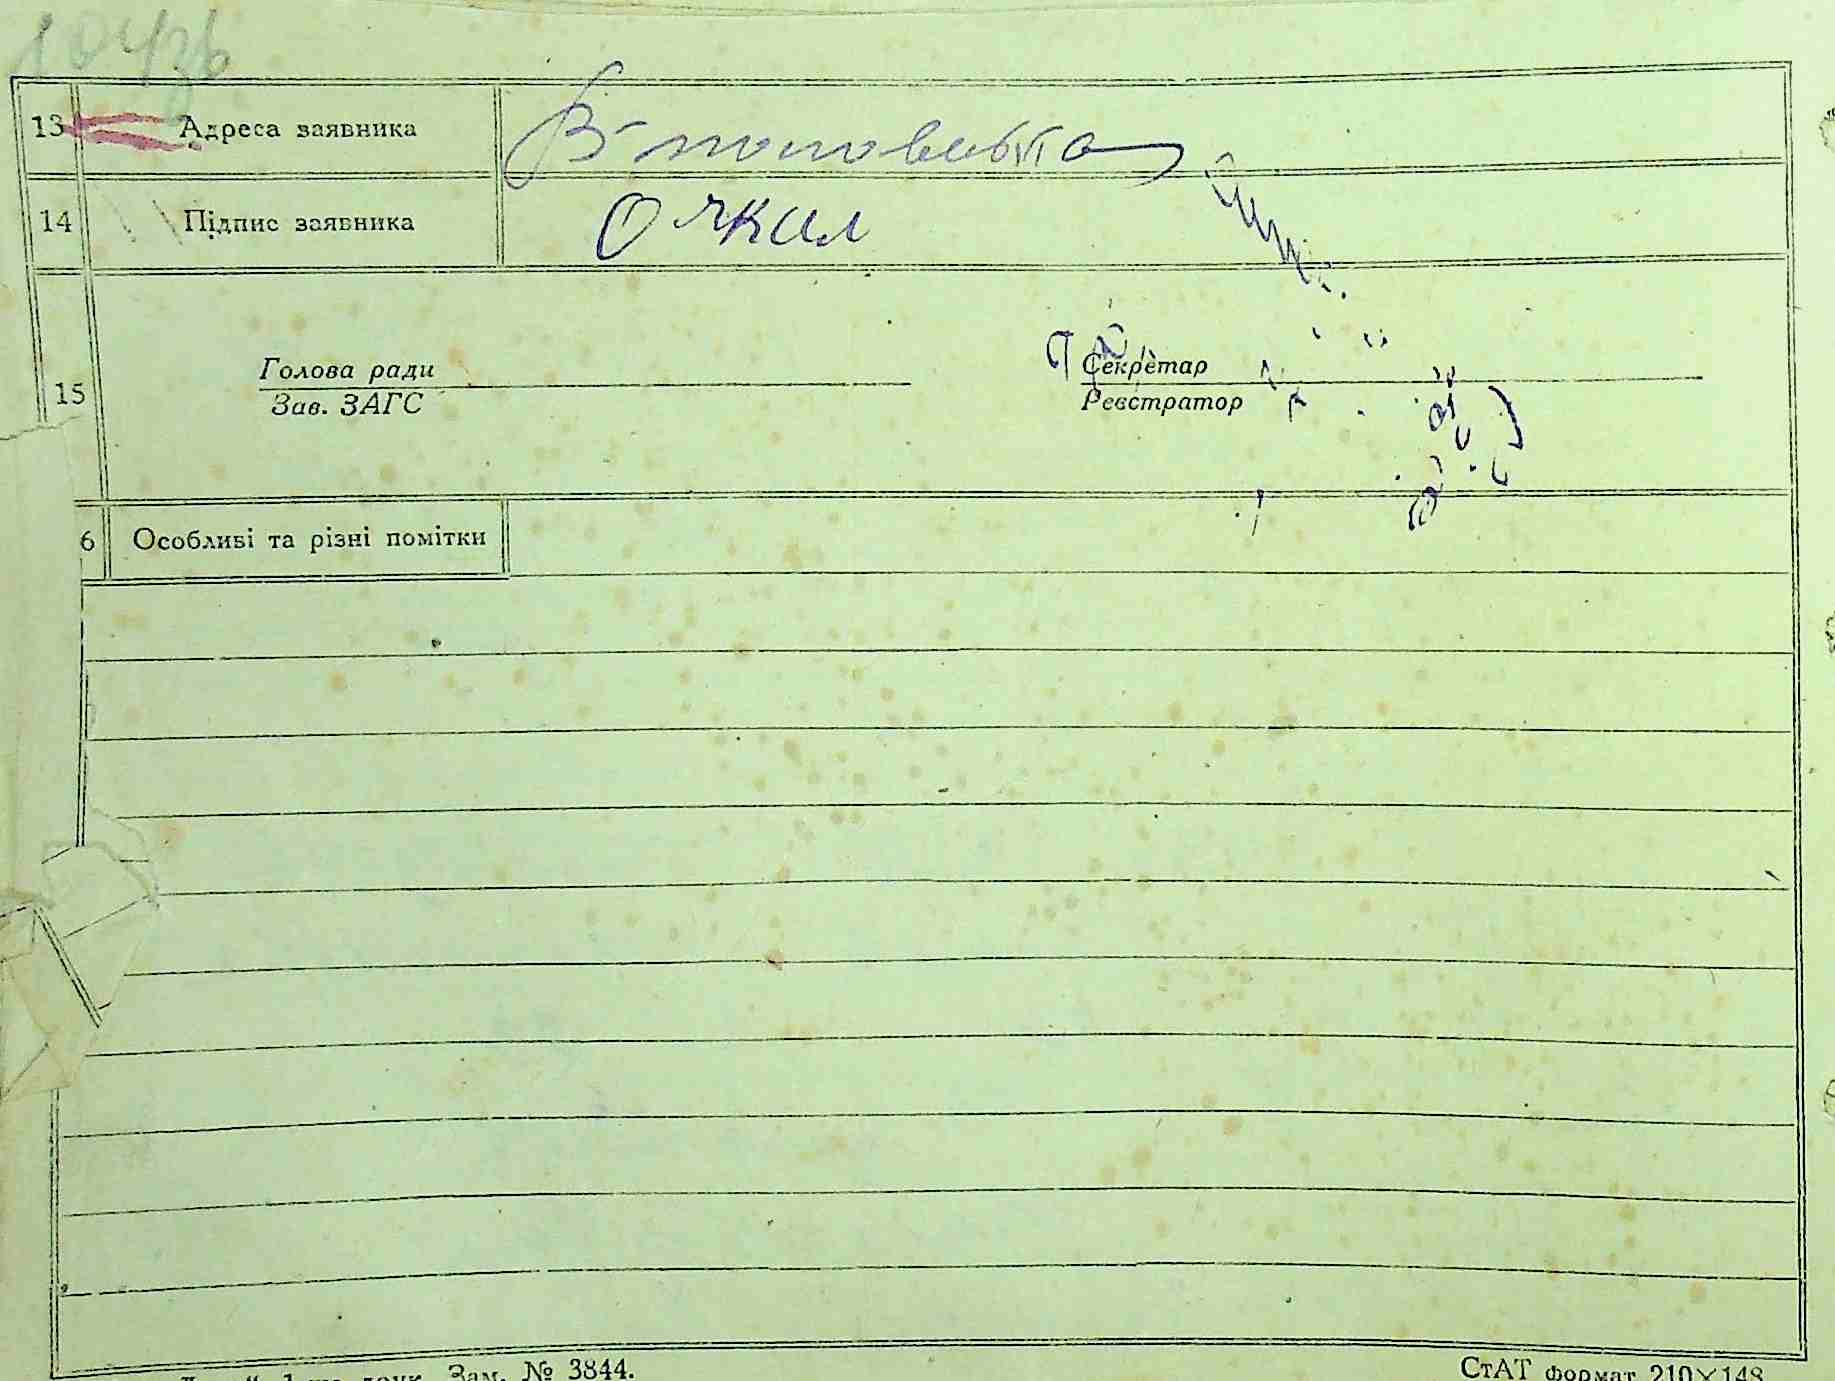 13 Адреса заявника
14 Підпис заявника Очкал
15 Голова ради Секретар
Зав. ЗАГС Реєстратор
6 Особливі та різні помітки
Зам. № 3844. СтАТ формат 210×148